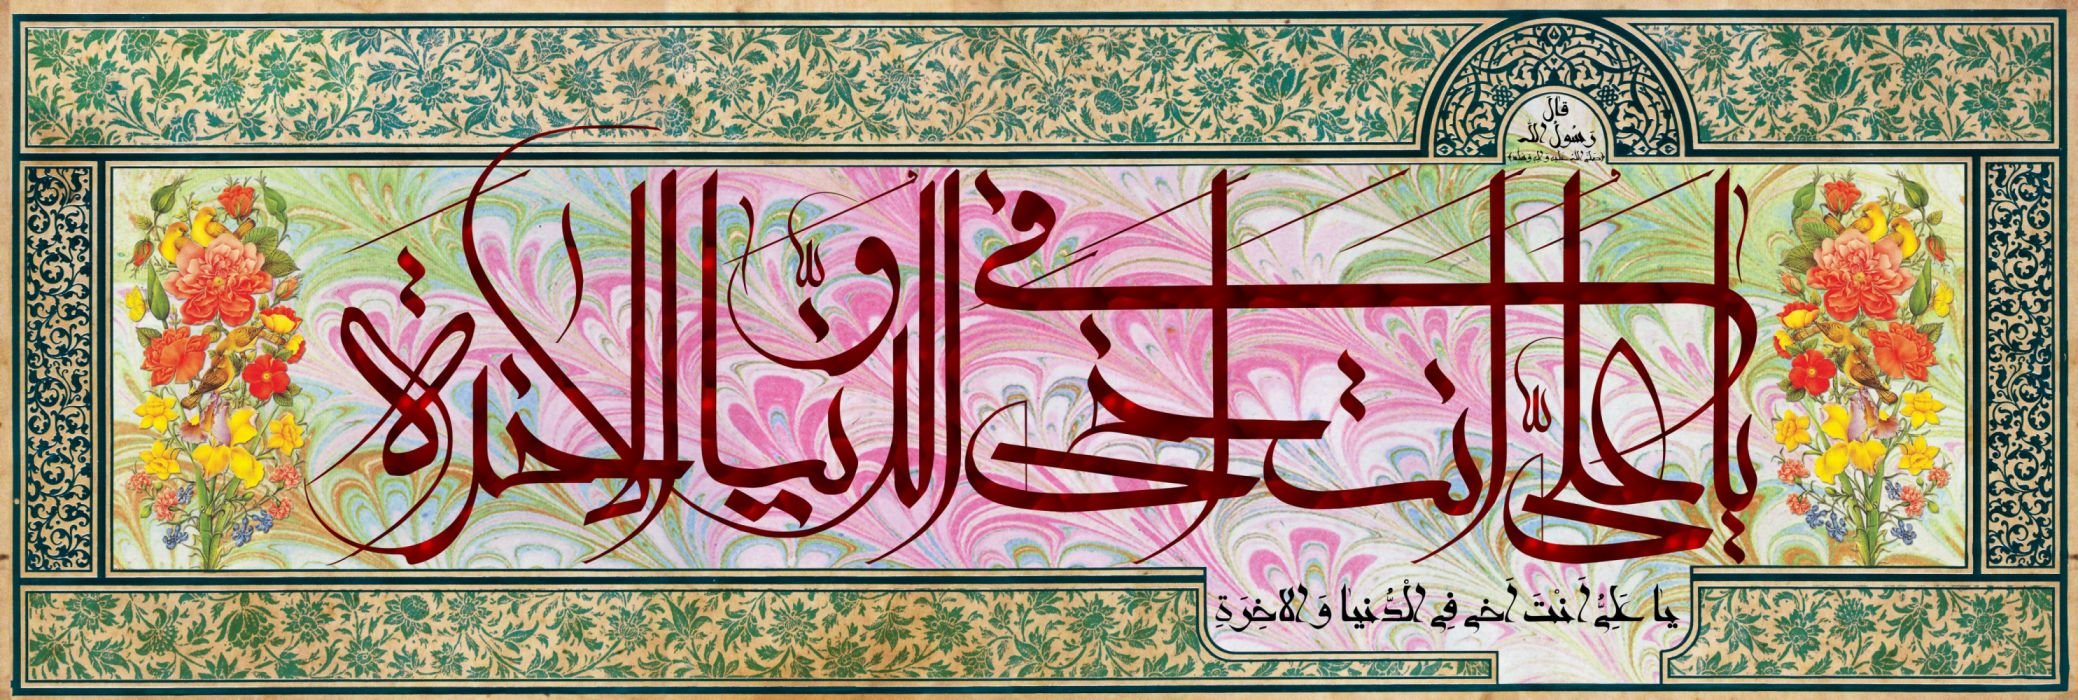 قالَ
رَسُولُ اللّه
(صَلَّی اللهُ عَلَیْهِ وَ آلِهِ وَ سَلَّم)
یا علیّ انت اخی فی الدنیا و الاخرة
یا عَلِیُّ اَنْتَ اَخی فِی الْدُّنیا وَ الاخِرَةِ